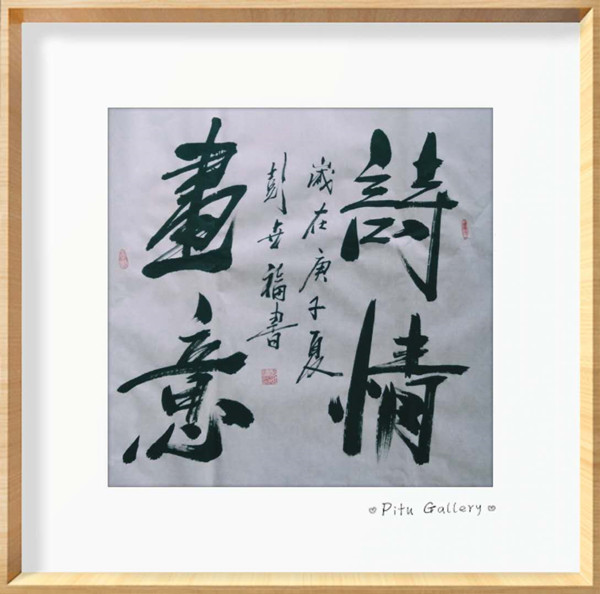 詩情
畫意
歲在庚子夏
彭世福書
Pitu Gallery